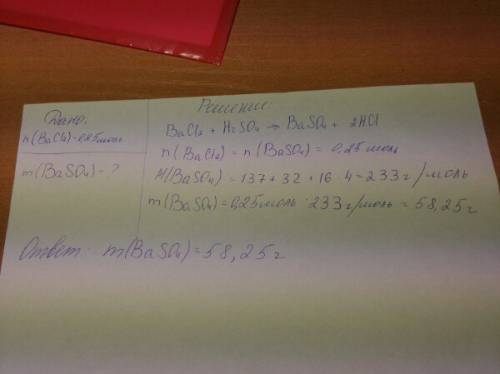 Дано:
n(BaCl₂)=0,25 моль
m(BaSO₄)-?
Решение:
BaCl₂ + H₂SO₄ → BaSO₄ + 2HCl
n(BaCl₂) = n(BaSO₄) = 0,25 моль
M(BaSO₄) = 137 + 32 + 16 · 4 = 233 г/моль
m(BaSO₄) = 0,25 моль · 233 г/моль = 58,25 г
Ответ: m(BaSO₄) = 58,25 г